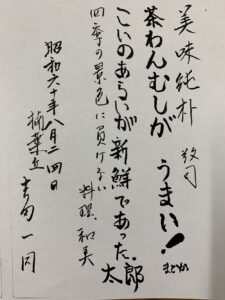 美味純朴
茶わんむしが
うまい!
まどか
こいのあらいが新鮮であった。
太郎
四季の景色に負けない
料理、和美
昭和六十年八月二四日
一同